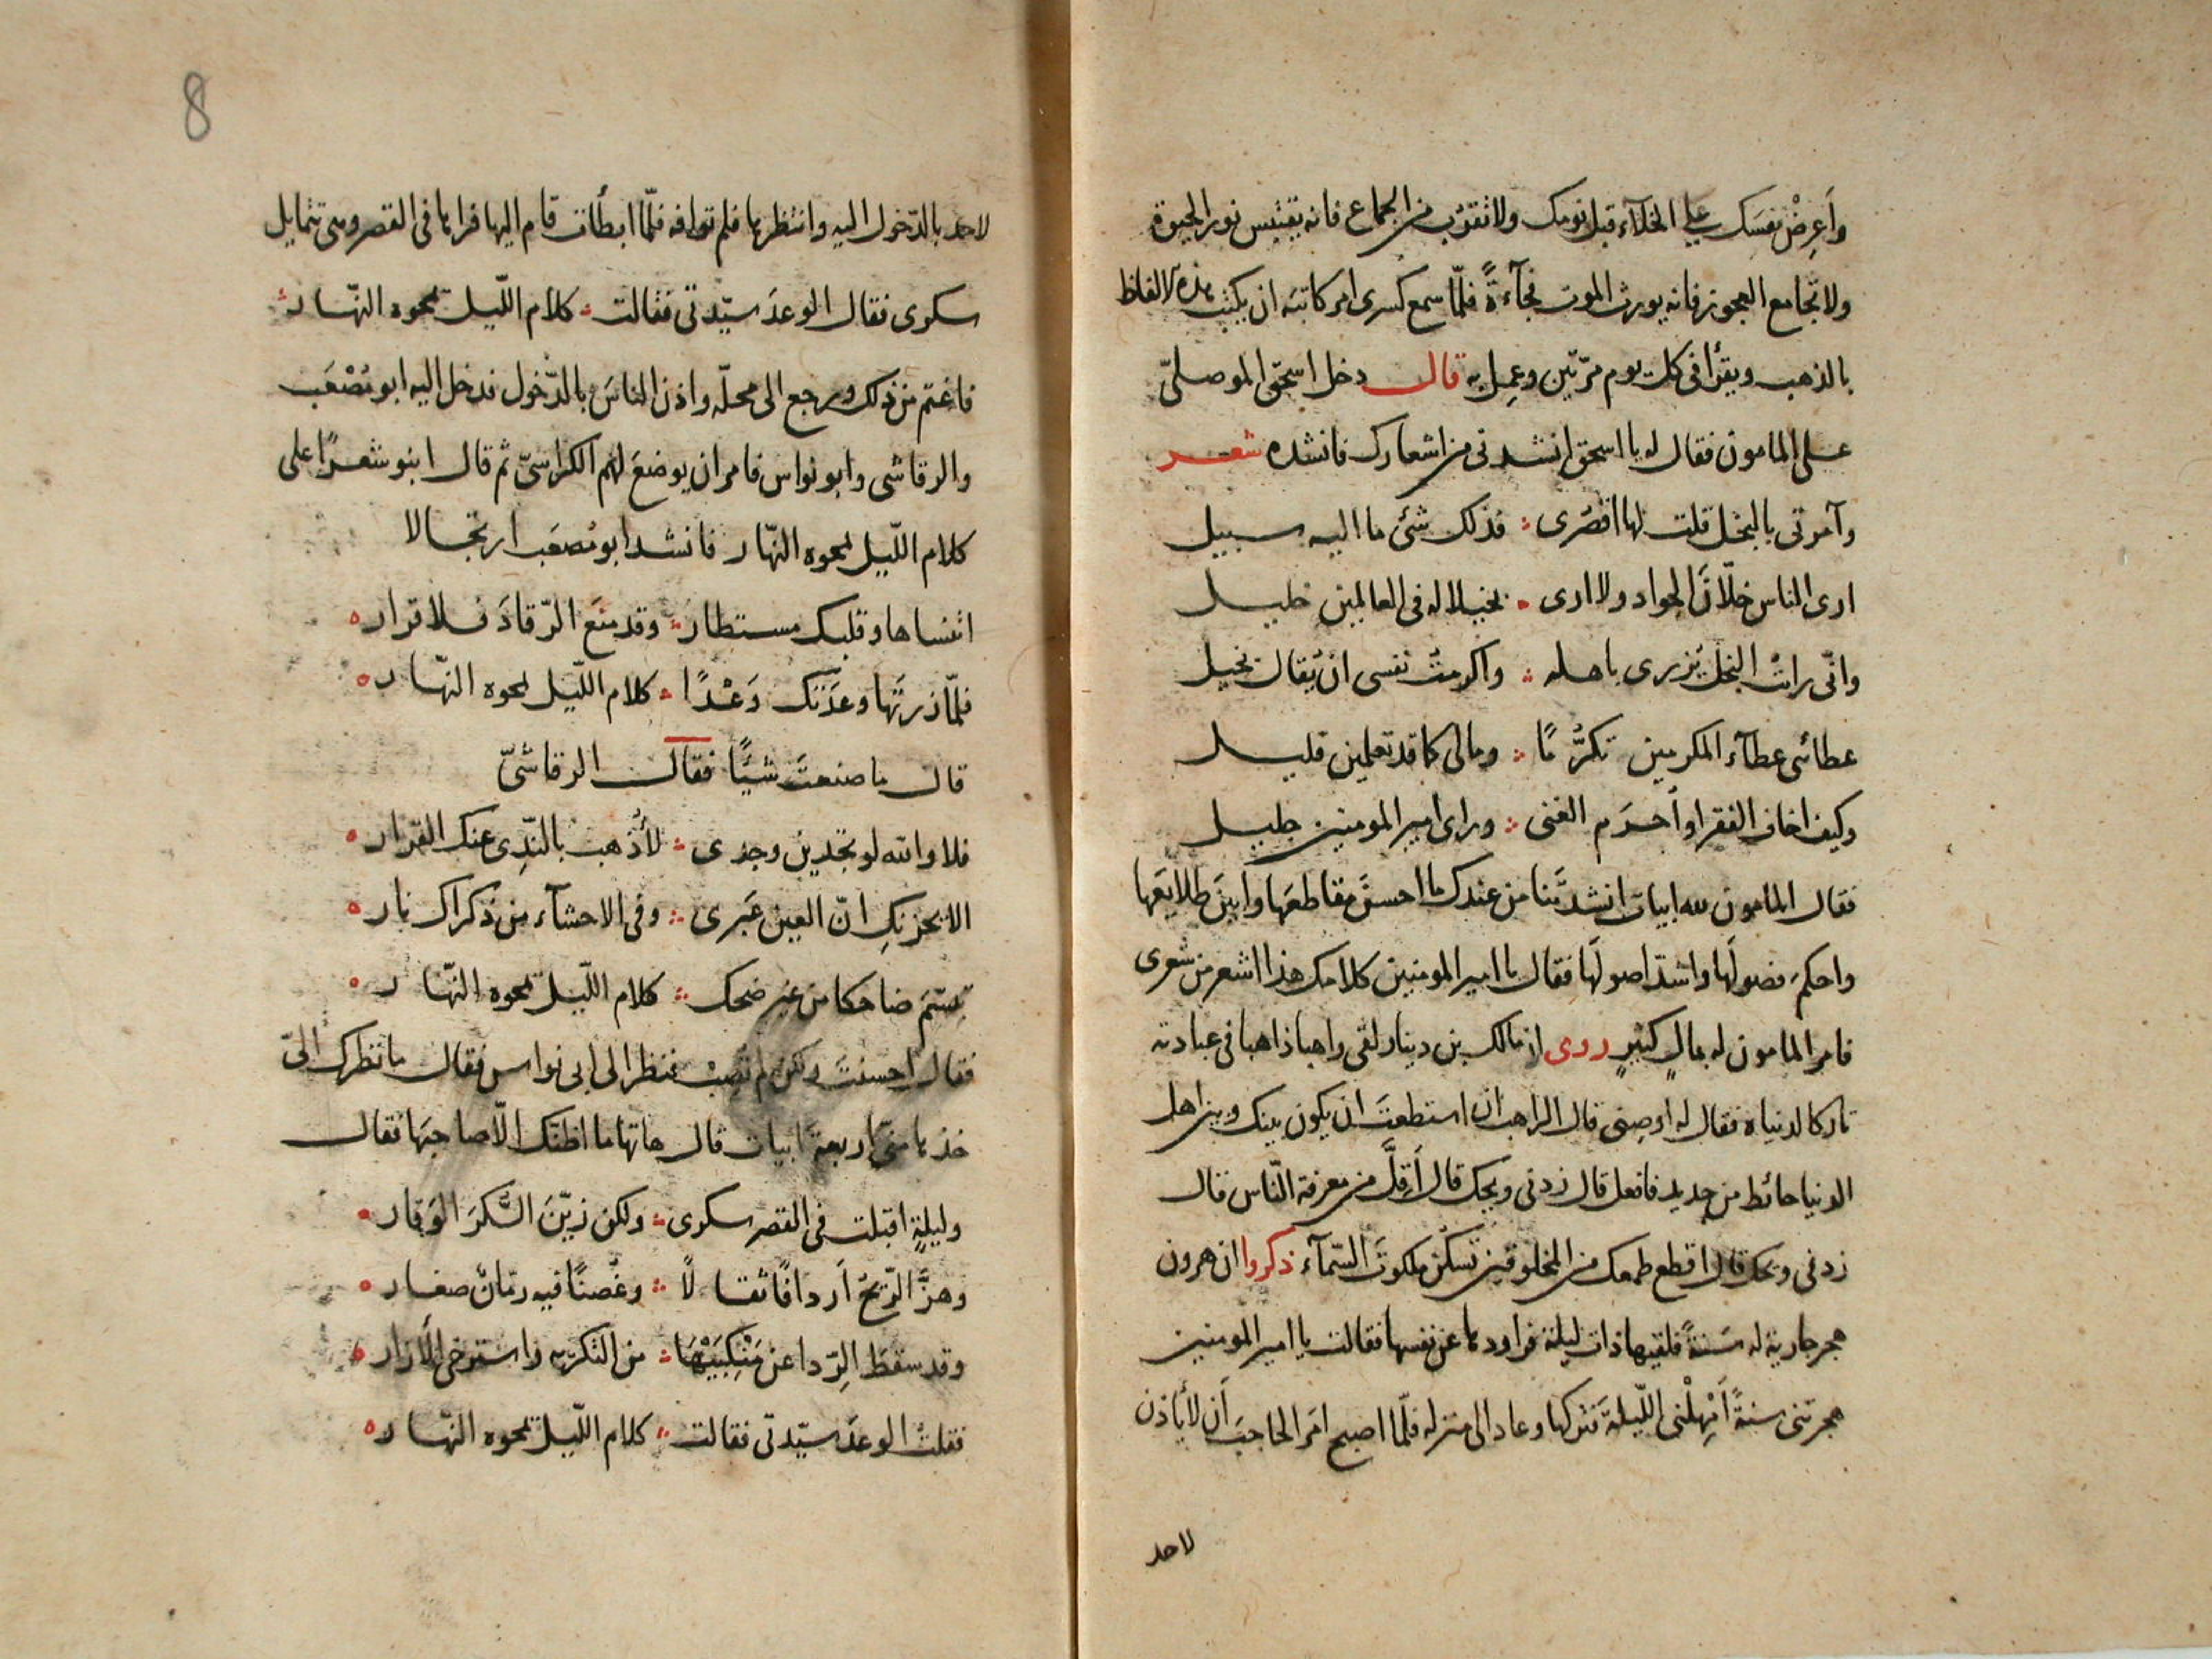 وَاَعرِضْ نفسَك على الخلاَء قبل نومك ولا تقرب من الجماع فانه يقتبس نور الحيوة
ولا تجامع العجوز فانه يورث الموت فجآءةً فلمّا سمع كسرى امر كاتبه ان يكتب هذه الالفاظ
بالذهب ويقرأ فى كل يوم مرّتين وعمِل به قال دخل اسحق الموصلىّ
على المامون فقال له يا اسحق انشدنى من اشعارك فانشده شعر
وآمرتى بالبخل قلت لها اقصرى فذلك شئ ما اليه سبيل
ارى الناس خلّانَ الجواد ولا ارى بخيلا له فى العالمين خليل
وانّى رايت البخل يُزرى باهله واكرمتُ نفسى ان يُقال بخيل
عطائى عطآء المكرمين تكرُّمًا ومالى كما قد تعلمين قليل
وكيف اخاف الفقر او اُحرَم الغنى وراى امير المومنين جليل
فقال المامون لله ابيات انشدتَنا من عندك ما احسنَ مقاطعَها وابينَ طلايعَها
واحكمَ فصولَها واشدّ اصولَها فقال يا امير المومنين كلامك هذا اشعر من شعرى
فامر المامون له بمالٍ كثيرٍ روى ان مالك بن دينار لقى راهبا ذاهبا فى عبادته
تاركا لدنياه فقال له اوصِنى قال الراهب ان استطعتَ ان يكون بينك وبين اهل
الدنيا حائط من حديد فافعل قال زدنى ويحك قال اَقِلَّ من معرفة النّاس قال
زدنى ويحك قال اقطع طمعك من المخلوقين تسكن ملكوتَ السّمآء ذكروا ان هرون
هجر جارية له سَنةً فلقيها ذات ليلة فراودها عن نفسها فقالت يا امير المومنين
هجرتنى سنةً اَمْهِلْنى اللّيلةَ فتركها وعاد الى منزله فلمّا اصبح امَر الحاجبَ اَن لا ياذن
لاحد
8
لاحد بالدّخول اليه وانتظرها فلم توافه فلمّا ابطأت قام اليها فراها فى القصر وهى تتمايل
سكرى فقال الوعدَ سيّدتى فقالت كلام اللّيل يمحوه النّهار
فاغتم من ذلك ورجع الى محلّه واذن الناسَ بالدّخول فدخل اليه ابو مُصْعَب
والرقاشى وابو نواس فامر ان يوضعَ لهم الكراسىّ ثم قال ابنو شعرًا على
كلام اللّيل يمحوه النّهار فانشد ابو مُصعَب ارتجالا
اتنساها وقلبك مستطار وقد منَع الرّقادَ فلا قرار
فلمّا زرتَها وعَدَتك وَعْدًا كلام اللّيل يمحوه النّهار
قال ما صنعتَ شيئًا فقال الرقاشىّ
فلا والله لو تجدين وجدى لاُذهب بالنّدى عنك القرار
الا يحزنكِ انّ العين عَبرى وفى الاحشآء من ذكراك نار
تبسّمَ ضاحكا من غير ضحك كلام اللّيل يمحوه النّهار
فقال احسنتَ ولكن لم تُصِبْ فنظر الى ابى نواس فقال ما نظرك الىّ
خذها منّى اربعةَ ابيات قال هاتها ما اظنّك الّا صاحبَها فقال
وليلةٍ اقبلت فى القصر سكرى ولكن زيّنَ السُّكرَ الوَقار
وهزَّ الرّيحُ اَردافًا ثقالًا وغُصنًا فيه رمّانٌ صغار
وقد سقطَ الرِّدا عن مَنْكِبَيْهَا من التكريه واسترخى الاَزار
فقلتُ الوعدَ سيّدتى فقالت كلام اللّيل يمحوه النّهار